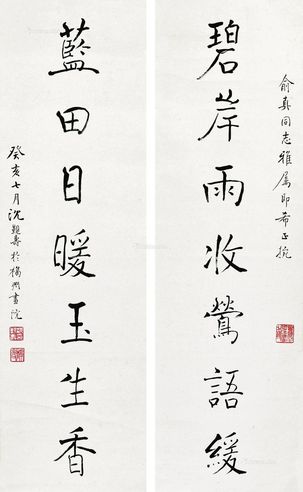 俞真同志雅属即希正腕
碧岸雨收鶯語緩
藍田日暖玉生香
癸亥七月沈觐壽於揚州畫院